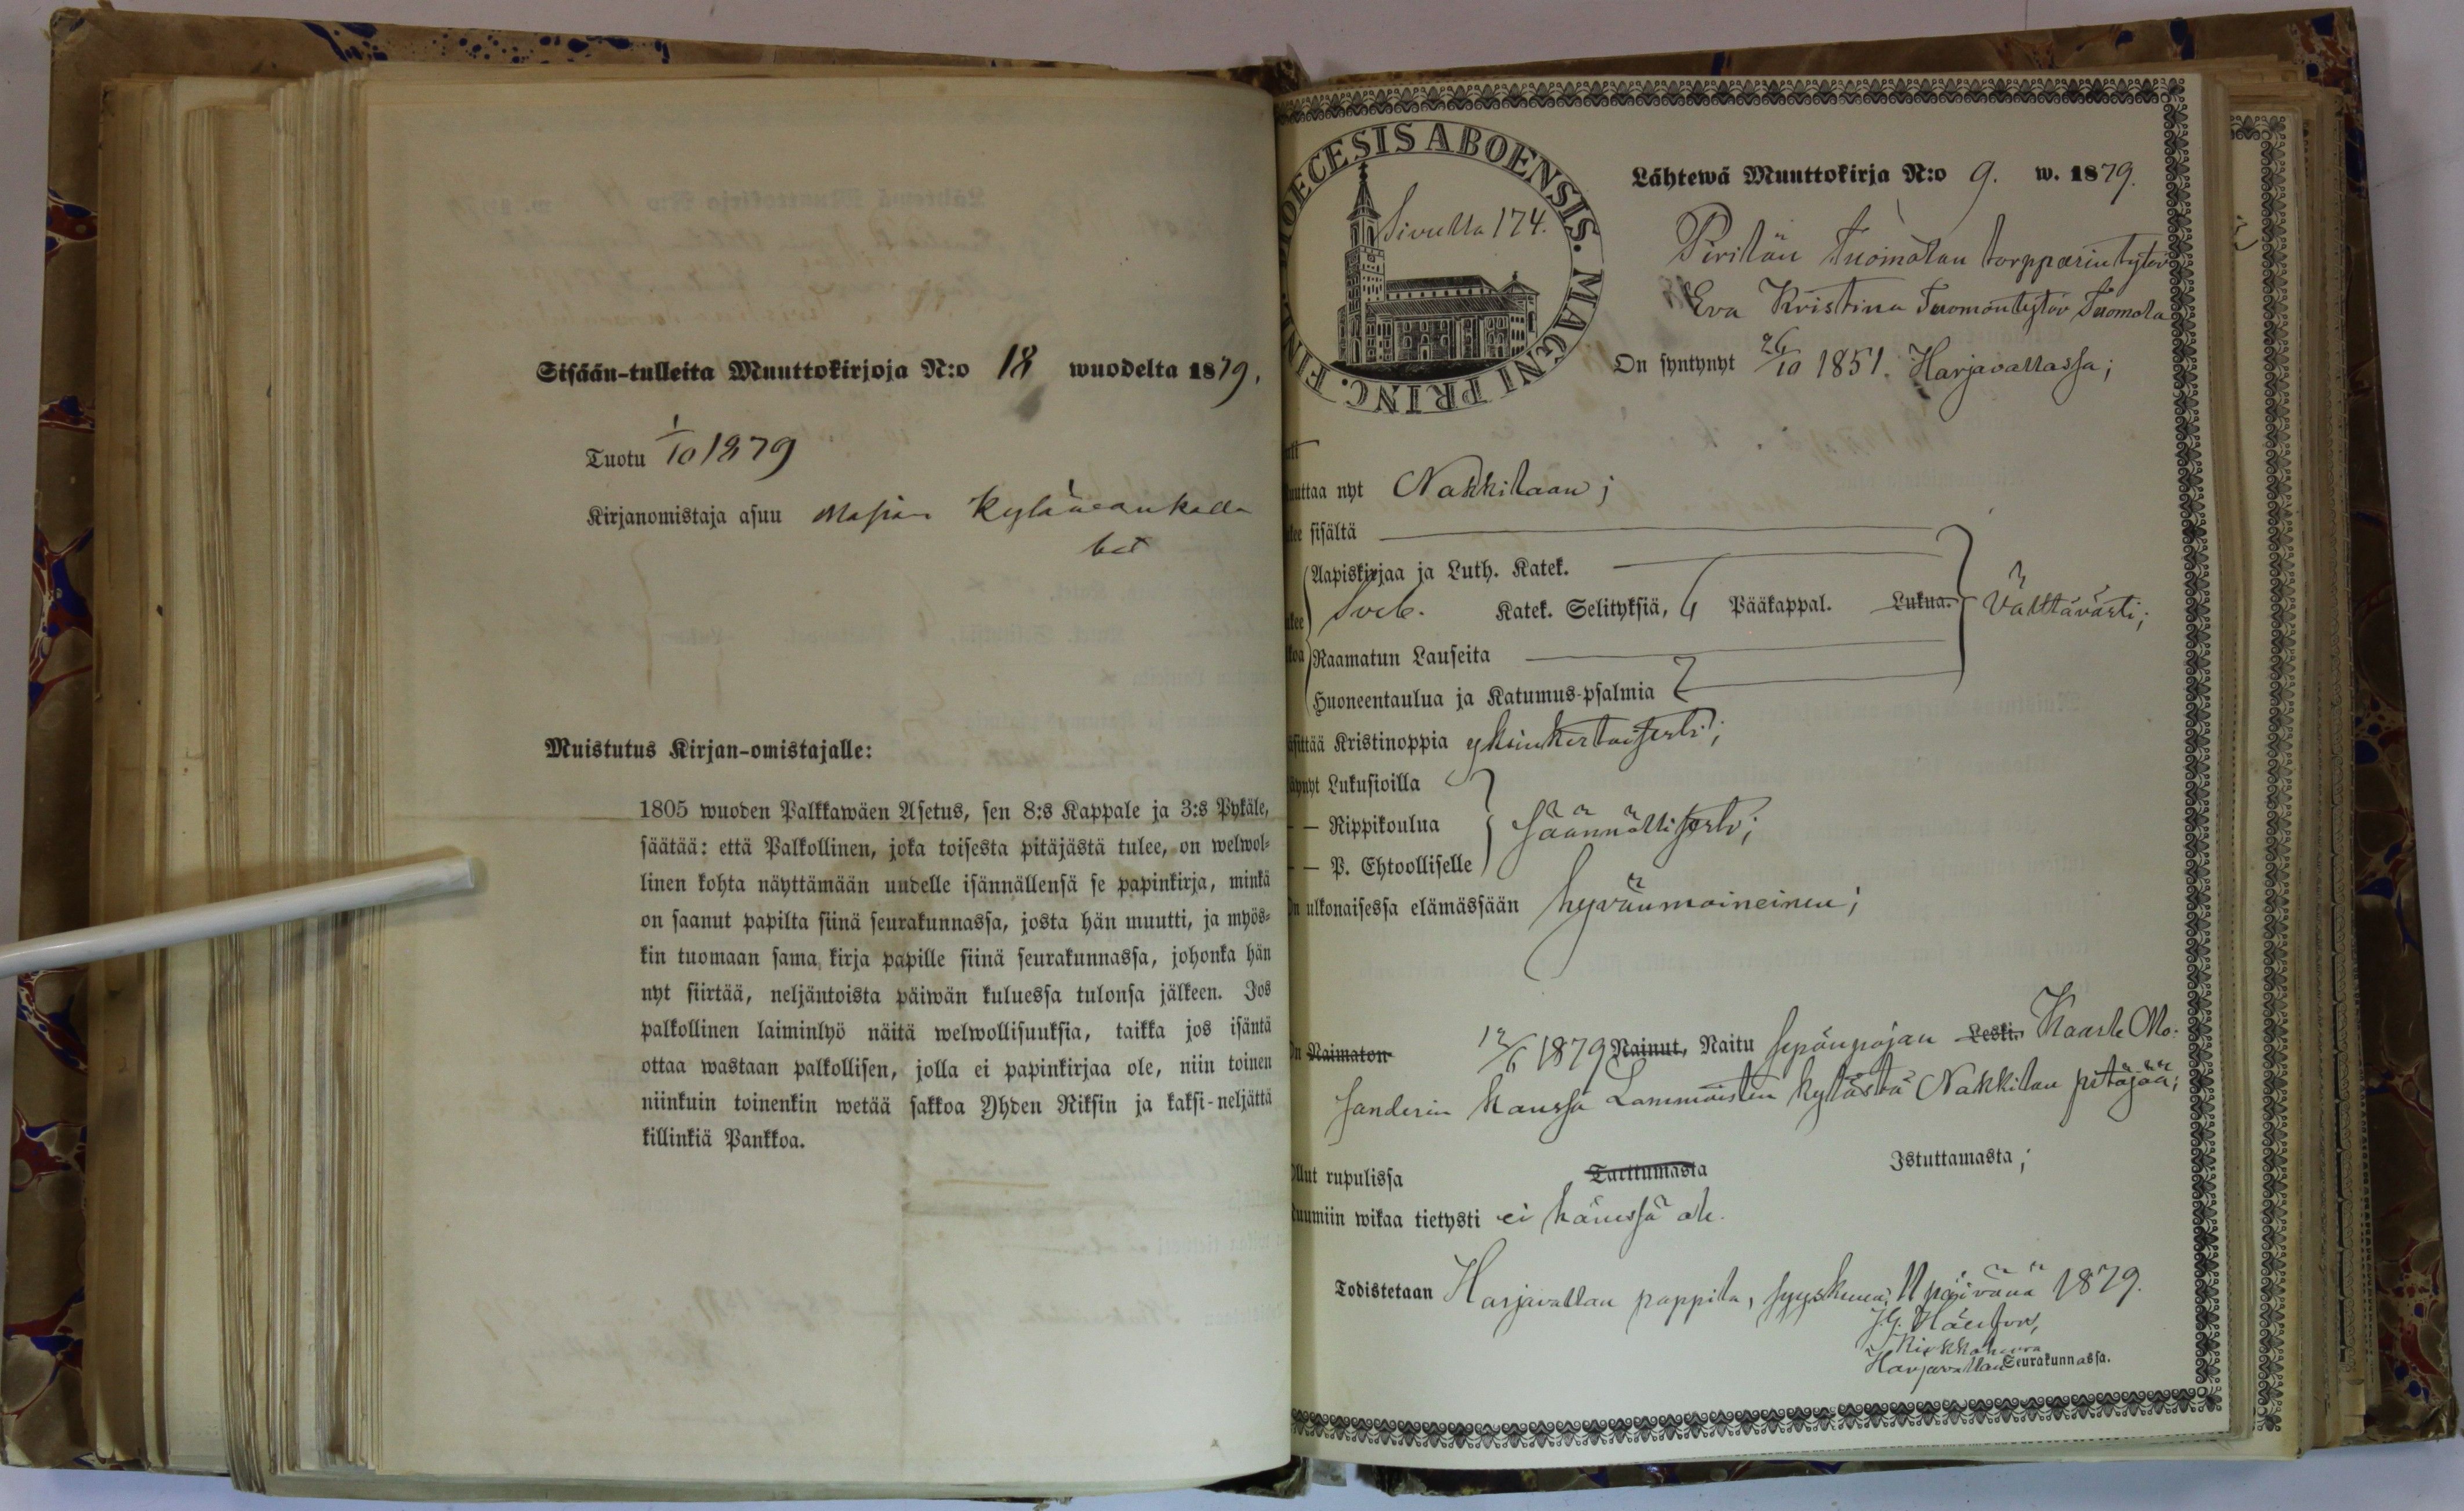 Sisään-tulleita Muuttokirjoja N:o 18 wuodelta 1879.
Tuotu 1/10 1879
Kirjanomistaja asuu
Muistutus Kirjan-omistajalle:
1805 wuoden Palkkawäen Asetus, sen 8:s Kappale ja 3:s Pykäle,
säätää: että Palkollinen, joka toisesta pitäjästä tulee, on welwol-
linen kohta näyttämään uudelle isännällensä se papinkirja, minkä
on saanut papilta siinä seurakunnassa, josta hän muutti, ja myös-
kin tuomaan sama kirja papille siinä seurakunnassa, johonka hän
nyt siirtää, neljäntoista päiwän kuluessa tulonsa jälkeen. Jos
palkollinen laiminlyö näitä welwollisuuksia, taikka jos isäntä
ottaa wastaan palkollisen, jolla ei papinkirjaa ole, niin toinen
niinkuin toinenkin wetää sakkoa Yhden Riksin ja kaksi-neljättä
killinkiä Pankkoa.
DIOECESIS ABOENSIS. MAGNI PRINC. FINL.
Sivulla 174.
Lähtewä Muuttokirja N:o 9. w. 1879.
Pirilän Tuomolan torpparintytär
Eva Kristina Tuomontytär Tuomola
On syntynyt 26/10 1851. Harjavallassa;
uuttaa nyt Nakkilaan;
kee sisältä
Aapiskirjaa ja Luth. Katek.
Sveb. Katek. Selityksiä, 6 Pääkappal. Lukua. Välttävästi;
Raamatun Lauseita
Huoneentaulua ja Katumus-psalmia
sittää Kristinoppia yksinkertaisesti;
äynyt Lukusioilla
— — Rippikoulua Säännöllisesti;
— — P. Ehtoolliselle
On ulkonaisessa elämässään hyvänmaineinen;
On Naimaton 12/6 1879 Nainut, Naitu sepänpojan Leski. Kaarle Ok-
sanderin kanssa Lammaisten kylästä Nakkilan pitäjää;
Ollut rupulissa Tarttumasta Istuttamasta;
uumiin wikaa tietysti ei hänessä ole.
Todistetaan Harjavallan pappila, syyskuun 11 päivänä 1879.
Kirkkoherra
Harjavallan Seurakunnassa.